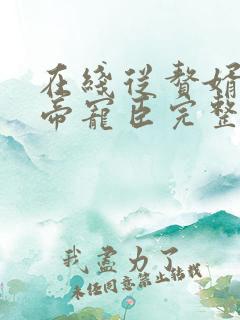 在线从赘婿
帝宠臣完整
我尽力了
未经同意禁止转载